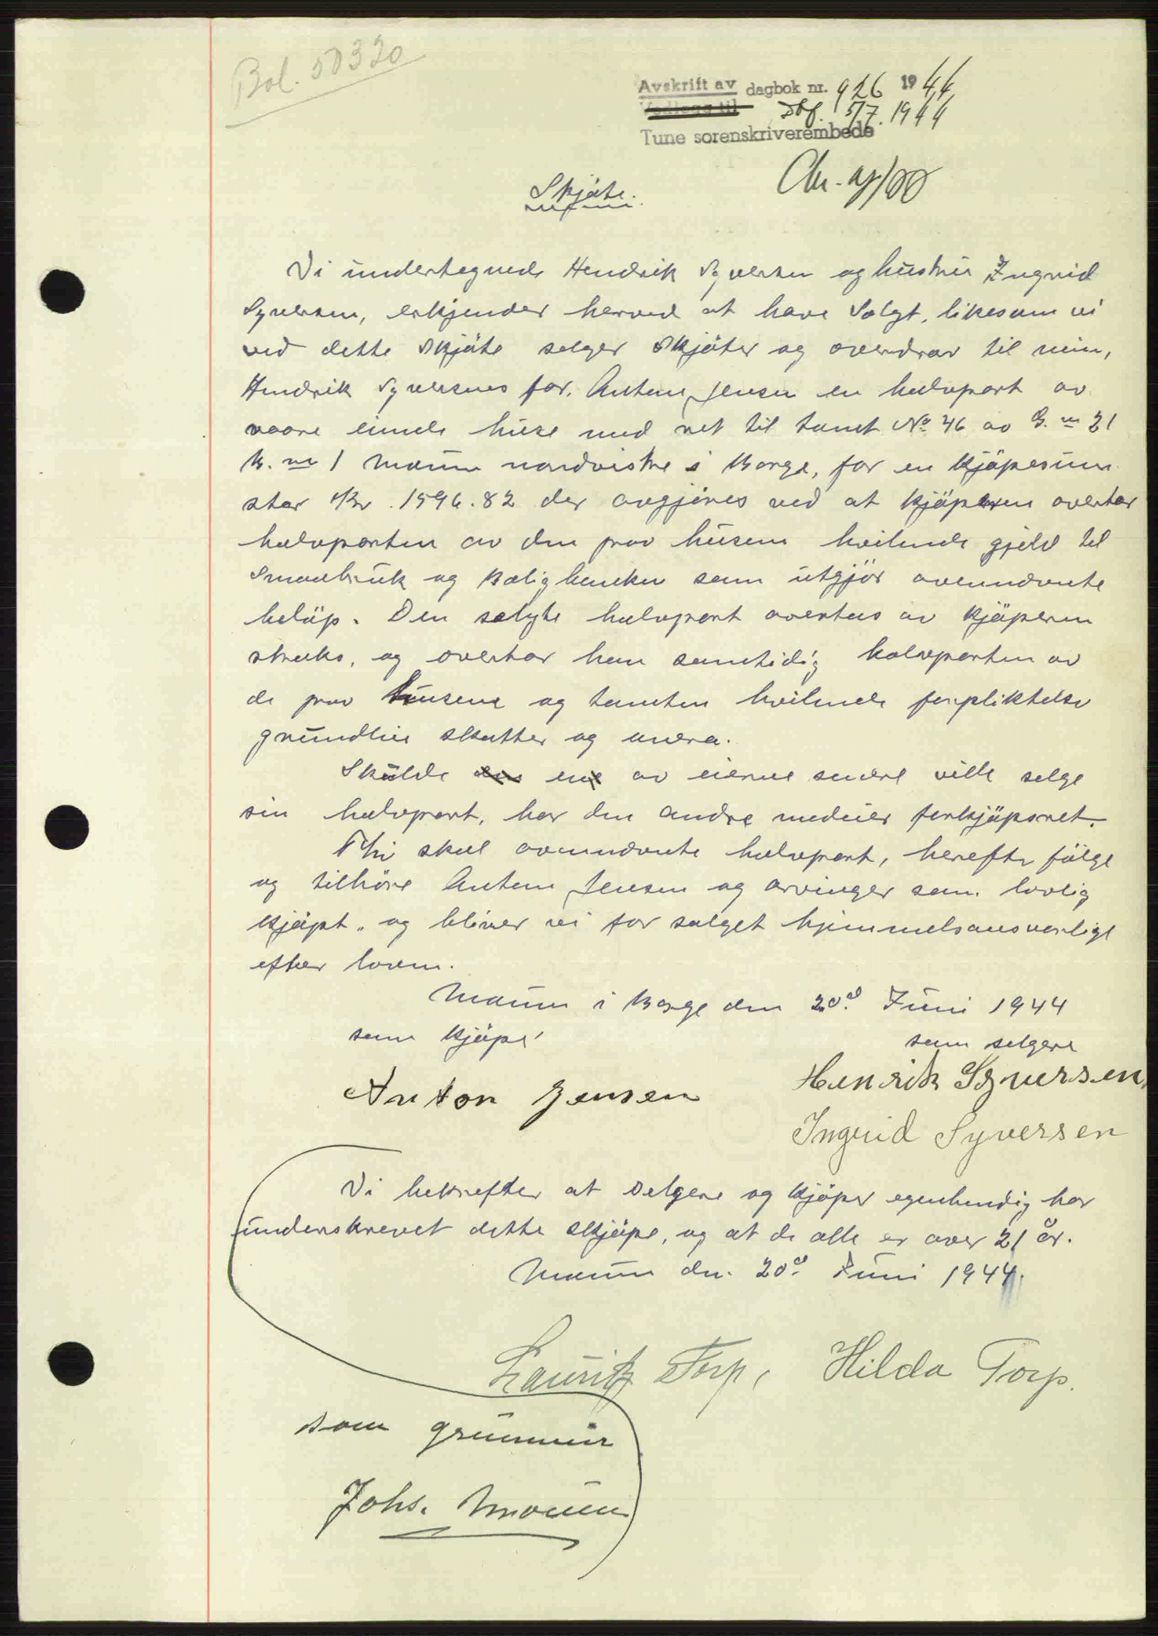 Bol. 50320
Avskrift av dagbok nr. 926 1944
Vedlegg til Dbf. 5/7. 1944
Tune sorenskriverembede
Skjøte.
Vi undertegnede Hendrik Syversen og hustru Ingrid
Syversen, erkjender herved at have Solgt, likesom vi
ved dette Skjøte selger Skjøter og overdrar til min,
Hendrik Syversens far, Anton Jensen en halvpart av
vaare eiende huse med ret til tomt No 46 av G. nr 21
B. nr 1 Maum nordvistre i Borge, for en kjøpesum
stor Kr. 1596.82 der avgjøres ved at kjøperen overtar
halvparten av den paa husene hvilende gjeld til
Smaabruk og Boligbanken som utgjør ovennevnte
beløp. Den solgte halvpart overtas av kjøperen
straks, og overtar han samtidig halvparten av
de paa husene og tomten hvilende forpliktelse
grundleie skatter og andre.
Skulde en av eierne senere ville selge
sin halvpart, har den andre medeier forkjøpsret.
Thi skal ovennevnte halvpart, herefter følge
og tilhøre Anton Jensen og arvinger som lovlig
kjøpt, og bliver vi for salget hjemmelsansvarlige
efter loven.
Maum i Borge den 20d Juni 1944
som kjøper som selgere
Anton Jensen Henrik Syversen
Ingrid Syversen
Vi bekrefter at Selgere og kjøper egenhendig har
underskrevet dette skjøte, og at de alle er over 21 år.
Maum den 20d Juni 1944.
Lauritz Torp, Hilda Torp.
som grunneier
Johs. Maum